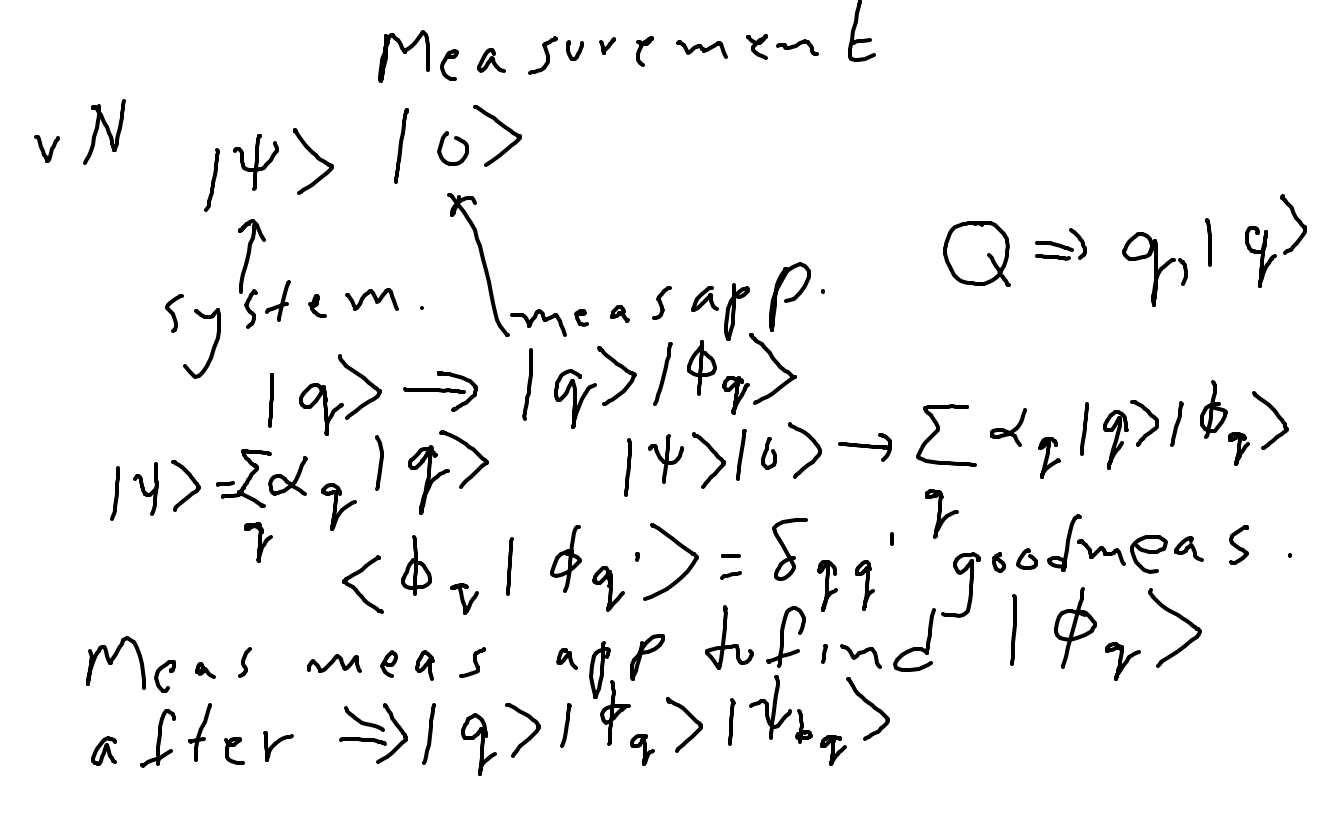 Measurement
vN |ψ> |0>
Q ⇒ q, |q>
system. meas app.
|q> → |q>|ϕ_q>
|ψ> = Σ_q α_q |q> |ψ>|0> → Σ_q α_q |q>|ϕ_q>
<ϕ_q|ϕ_q'> = δ_qq' good meas.
Meas meas app to find |ϕ_q>
after ⇒ |q>|ϕ_q>|ψ_ϕ_q>